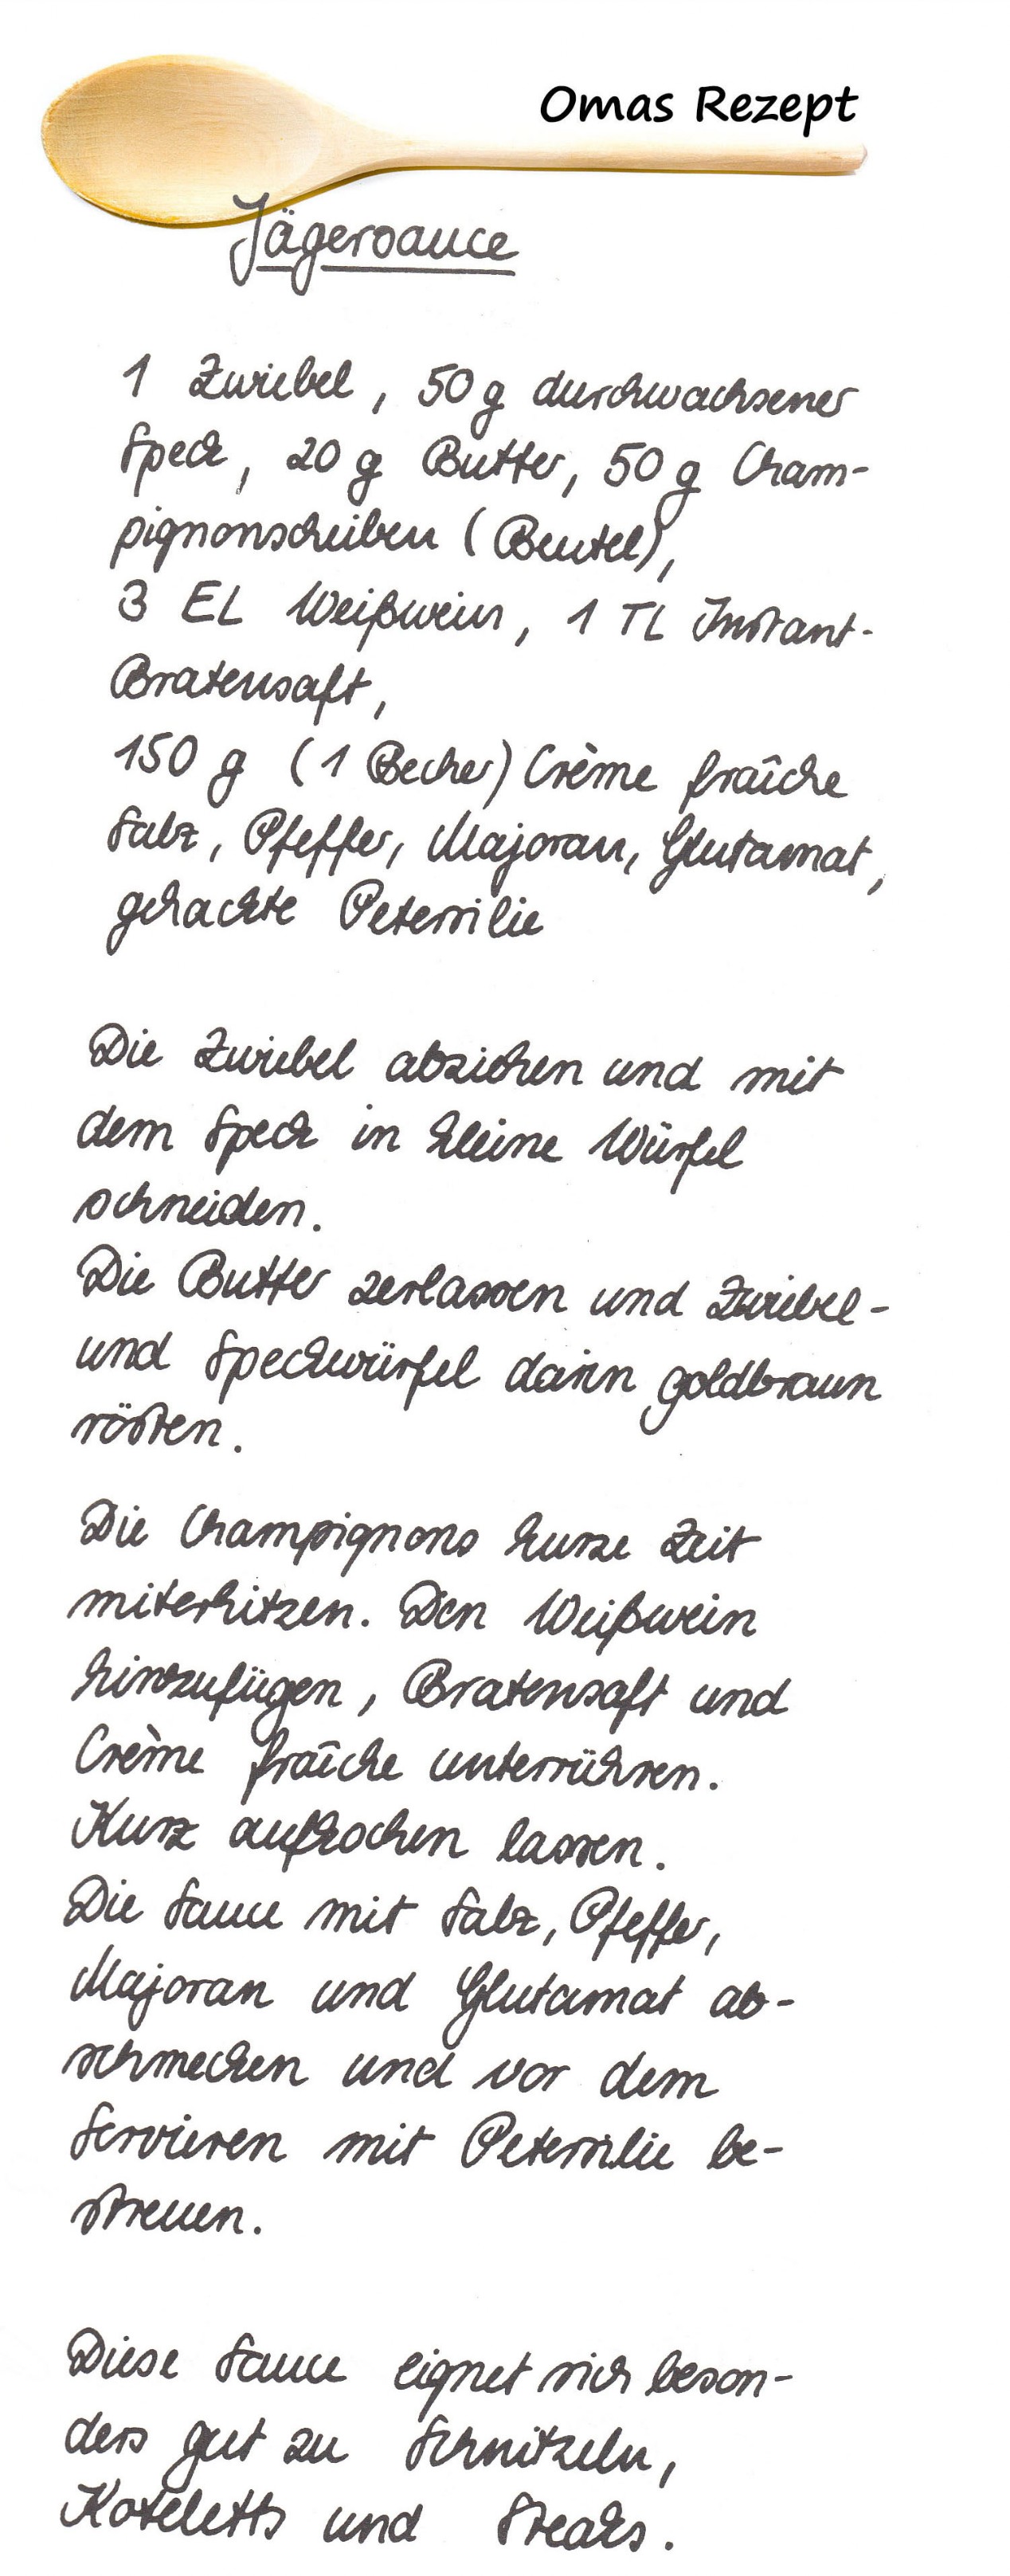 Omas Rezept
Jägersauce
1 Zwiebel, 50 g durchwachsener
Speck, 20 g Butter, 50 g Cham-
pignonscheiben (Beutel),
3 EL Weißwein, 1 TL Instant-
Bratensaft,
150 g (1 Becher) Crème fraîche
Salz, Pfeffer, Majoran, Glutamat,
gehackte Petersilie
Die Zwiebel abziehen und mit
dem Speck in kleine Würfel
schneiden.
Die Butter zerlassen und Zwiebel-
und Speckwürfel darin goldbraun
rösten.
Die Champignons kurze Zeit
miterhitzen. Den Weißwein
hinzufügen, Bratensaft und
Crème fraîche unterrühren.
Kurz aufkochen lassen.
Die Sauce mit Salz, Pfeffer,
Majoran und Glutamat ab-
schmecken und vor dem
Servieren mit Petersilie be-
streuen.
Diese Sauce eignet sich beson-
ders gut zu Schnitzeln,
Koteletts und Steaks.